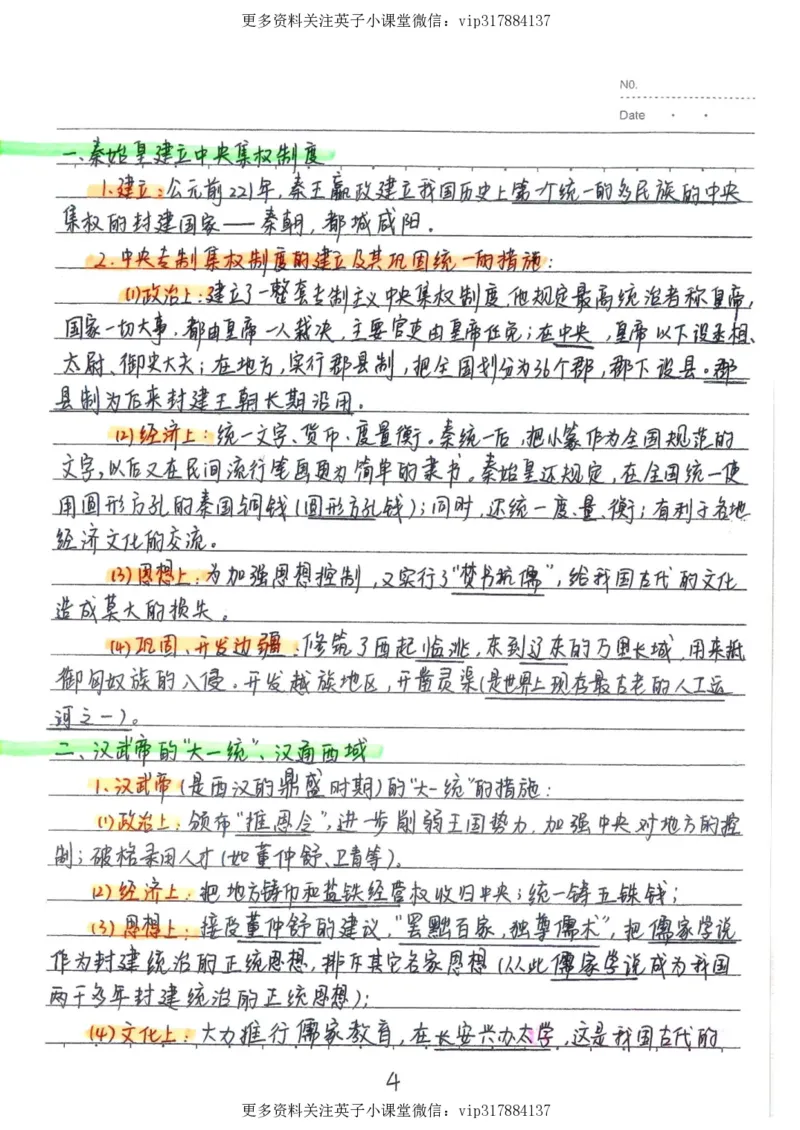 更多资料关注英子小课堂微信：vip317884137
NO.
Date
一、秦始皇建立中央集权制度
1.建立：公元前221年，秦王嬴政建立我国历史上第一个统一的多民族的中央
集权的封建国家——秦朝，都城咸阳。
2.中央专制集权制度的建立及其巩固统一的措施：
(1)政治上：建立了一整套专制主义中央集权制度，他规定最高统治者称皇帝，
国家一切大事，都由皇帝一人裁决，主要官吏由皇帝任免；在中央，皇帝以下设丞相、
太尉、御史大夫；在地方，实行郡县制，把全国划分为36个郡，郡下设县。郡
县制为后来封建王朝长期沿用。
(2)经济上：统一文字、货币、度量衡。秦统一后，把小篆作为全国规范的
文字，以后又在民间流行笔画更为简单的隶书。秦始皇还规定，在全国统一使
用圆形方孔的秦国铜钱（圆形方孔钱）；同时，还统一度、量、衡；有利于各地
经济文化的交流。
(3)思想上：为加强思想控制，又实行了“焚书坑儒”，给我国古代的文化
造成莫大的损失。
(4)巩固、开发边疆：修筑了西起临洮，东到辽东的万里长城，用来抵
御匈奴族的入侵。开发越族地区，开凿灵渠（是世界上现存最古老的人工运
河之一）。
二、汉武帝的“大一统”、汉通西域
1、汉武帝（是西汉的鼎盛时期）的“大一统”的措施：
(1)政治上：颁布“推恩令”，进一步削弱王国势力，加强中央对地方的控
制；破格录用人才（如董仲舒、卫青等）。
(2)经济上：把地方铸币和盐铁经营权收归中央；统一铸五铢钱；
(3)思想上：接受董仲舒的建议，“罢黜百家，独尊儒术”，把儒家学说
作为封建统治的正统思想，排斥其它各家思想（从此儒家学说成为我国
两千多年封建统治的正统思想）；
(4)文化上：大力推行儒家教育，在长安兴办太学，这是我国古代的
4
更多资料关注英子小课堂微信：vip317884137